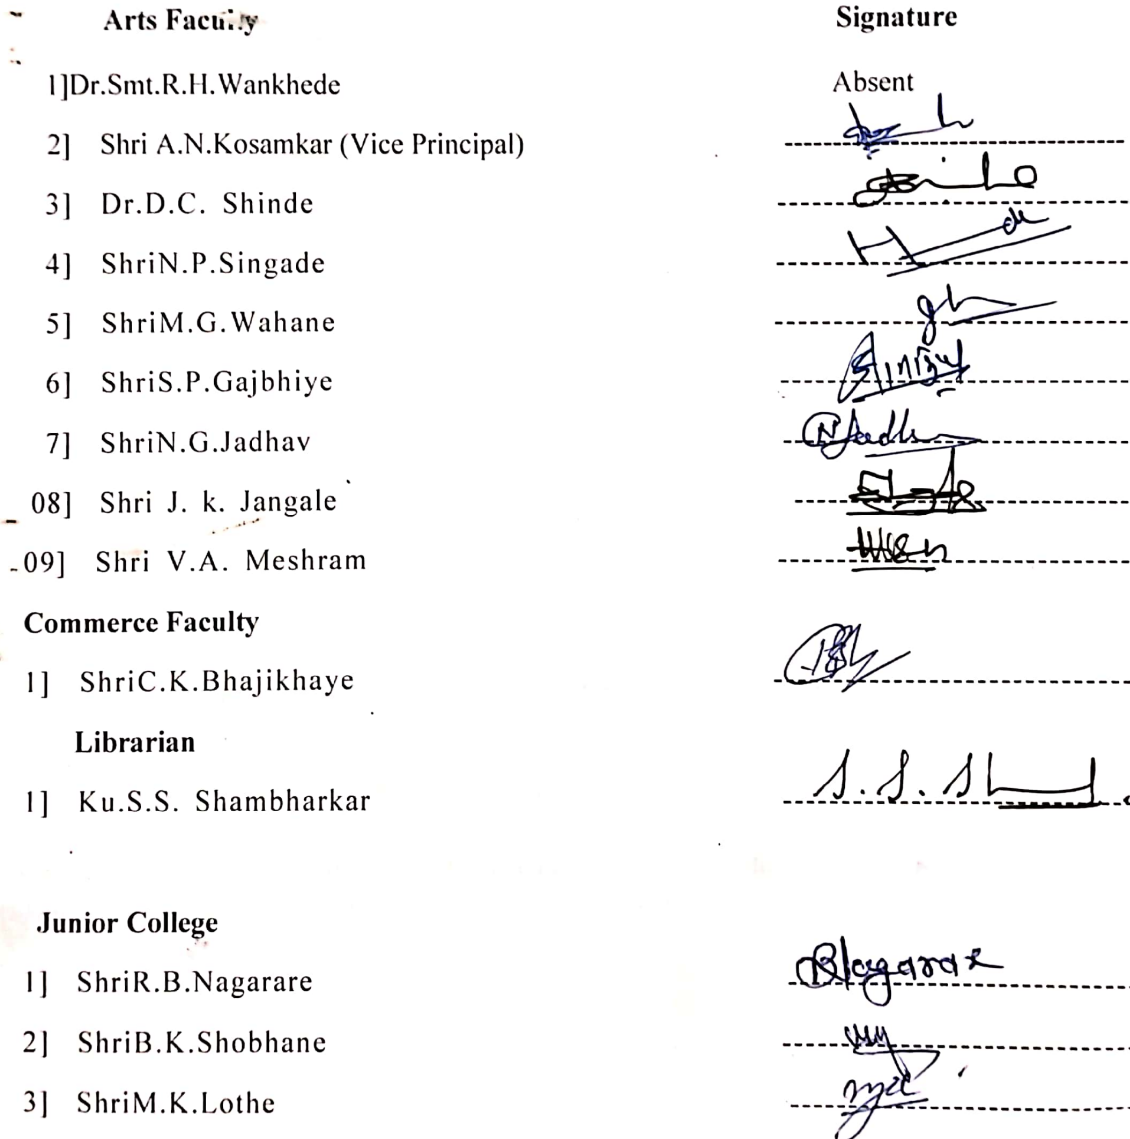 Arts Faculty Signature
1]Dr.Smt.R.H.Wankhede Absent
2] Shri A.N.Kosamkar (Vice Principal)
3] Dr.D.C. Shinde
4] ShriN.P.Singade
5] ShriM.G.Wahane
6] ShriS.P.Gajbhiye
7] ShriN.G.Jadhav
08] Shri J. k. Jangale
09] Shri V.A. Meshram
Commerce Faculty
1] ShriC.K.Bhajikhaye
Librarian
1] Ku.S.S. Shambharkar S. S.
Junior College
1] ShriR.B.Nagarare
2] ShriB.K.Shobhane
3] ShriM.K.Lothe